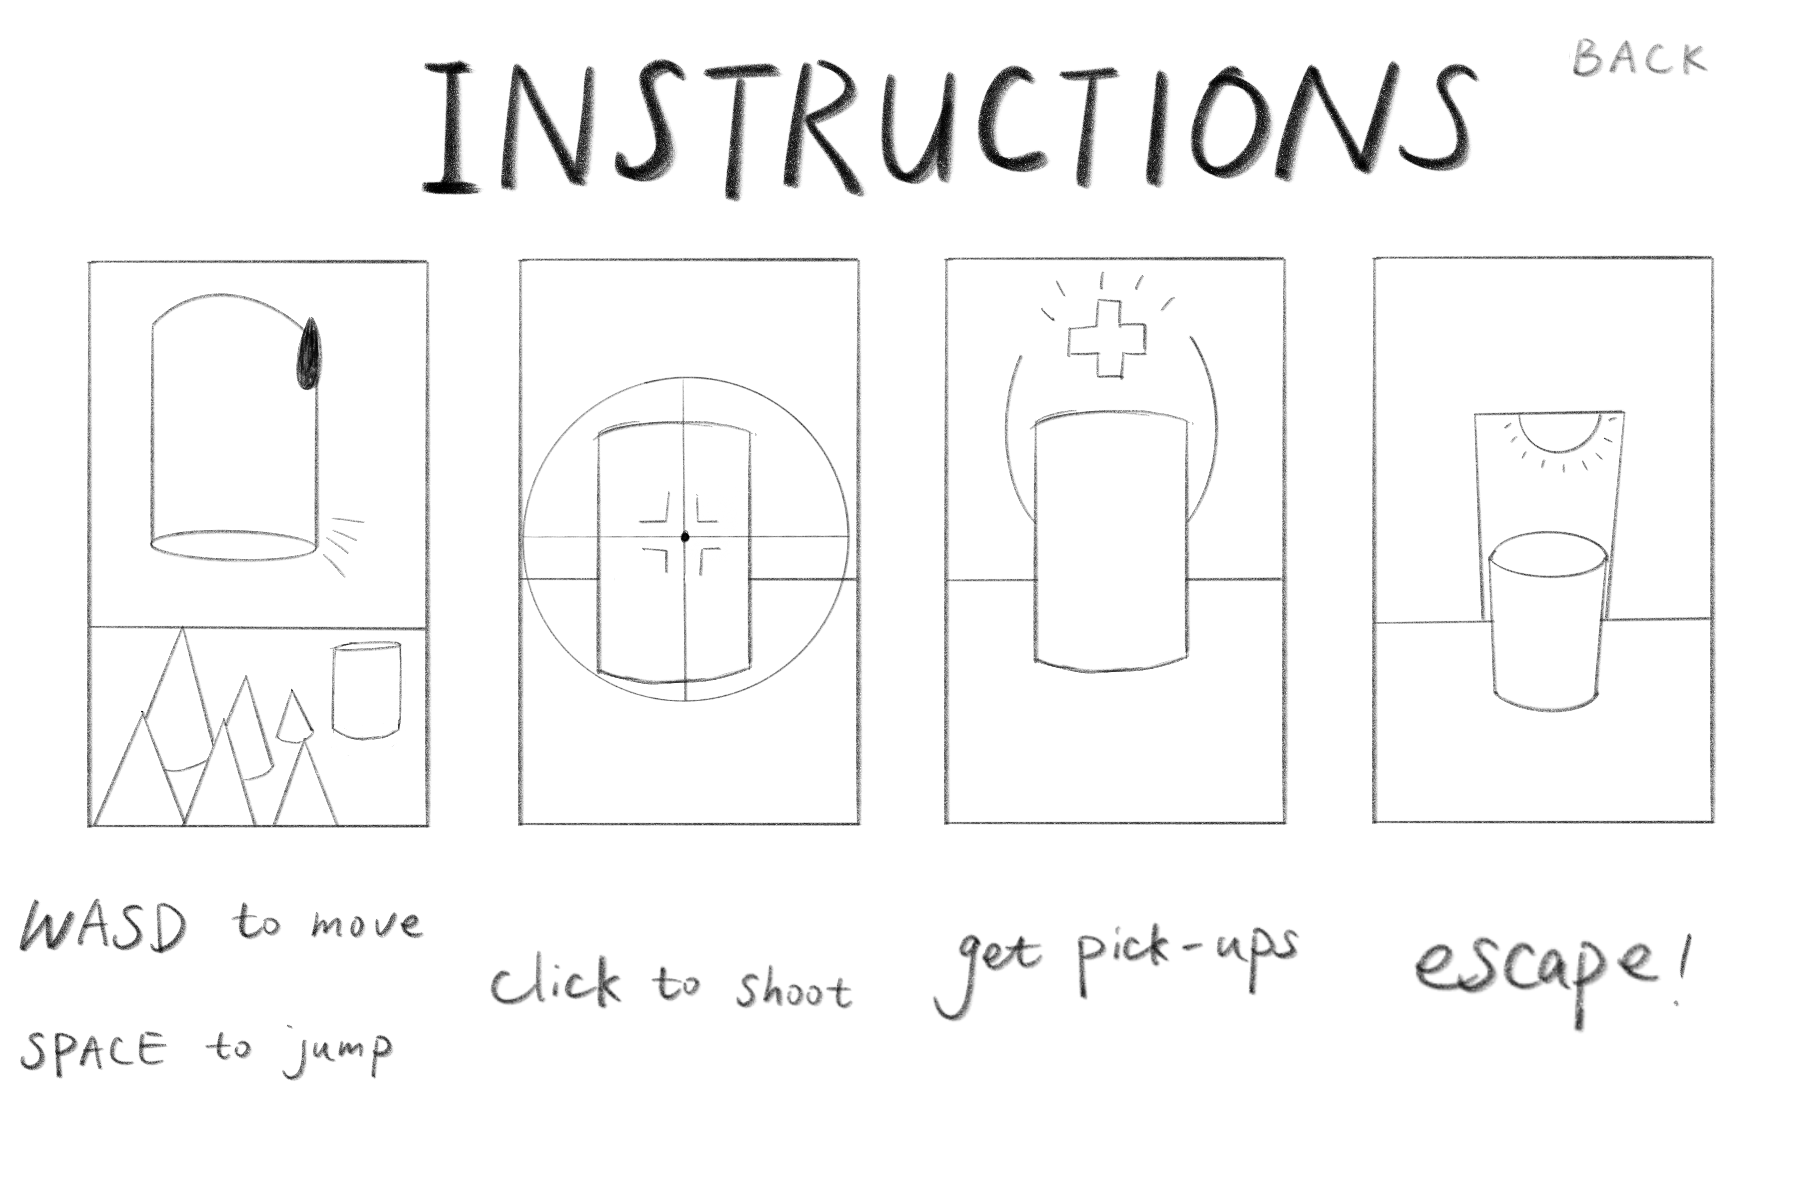 INSTRUCTIONS
BACK
WASD to move
SPACE to jump
click to shoot
get pick-ups
escape!